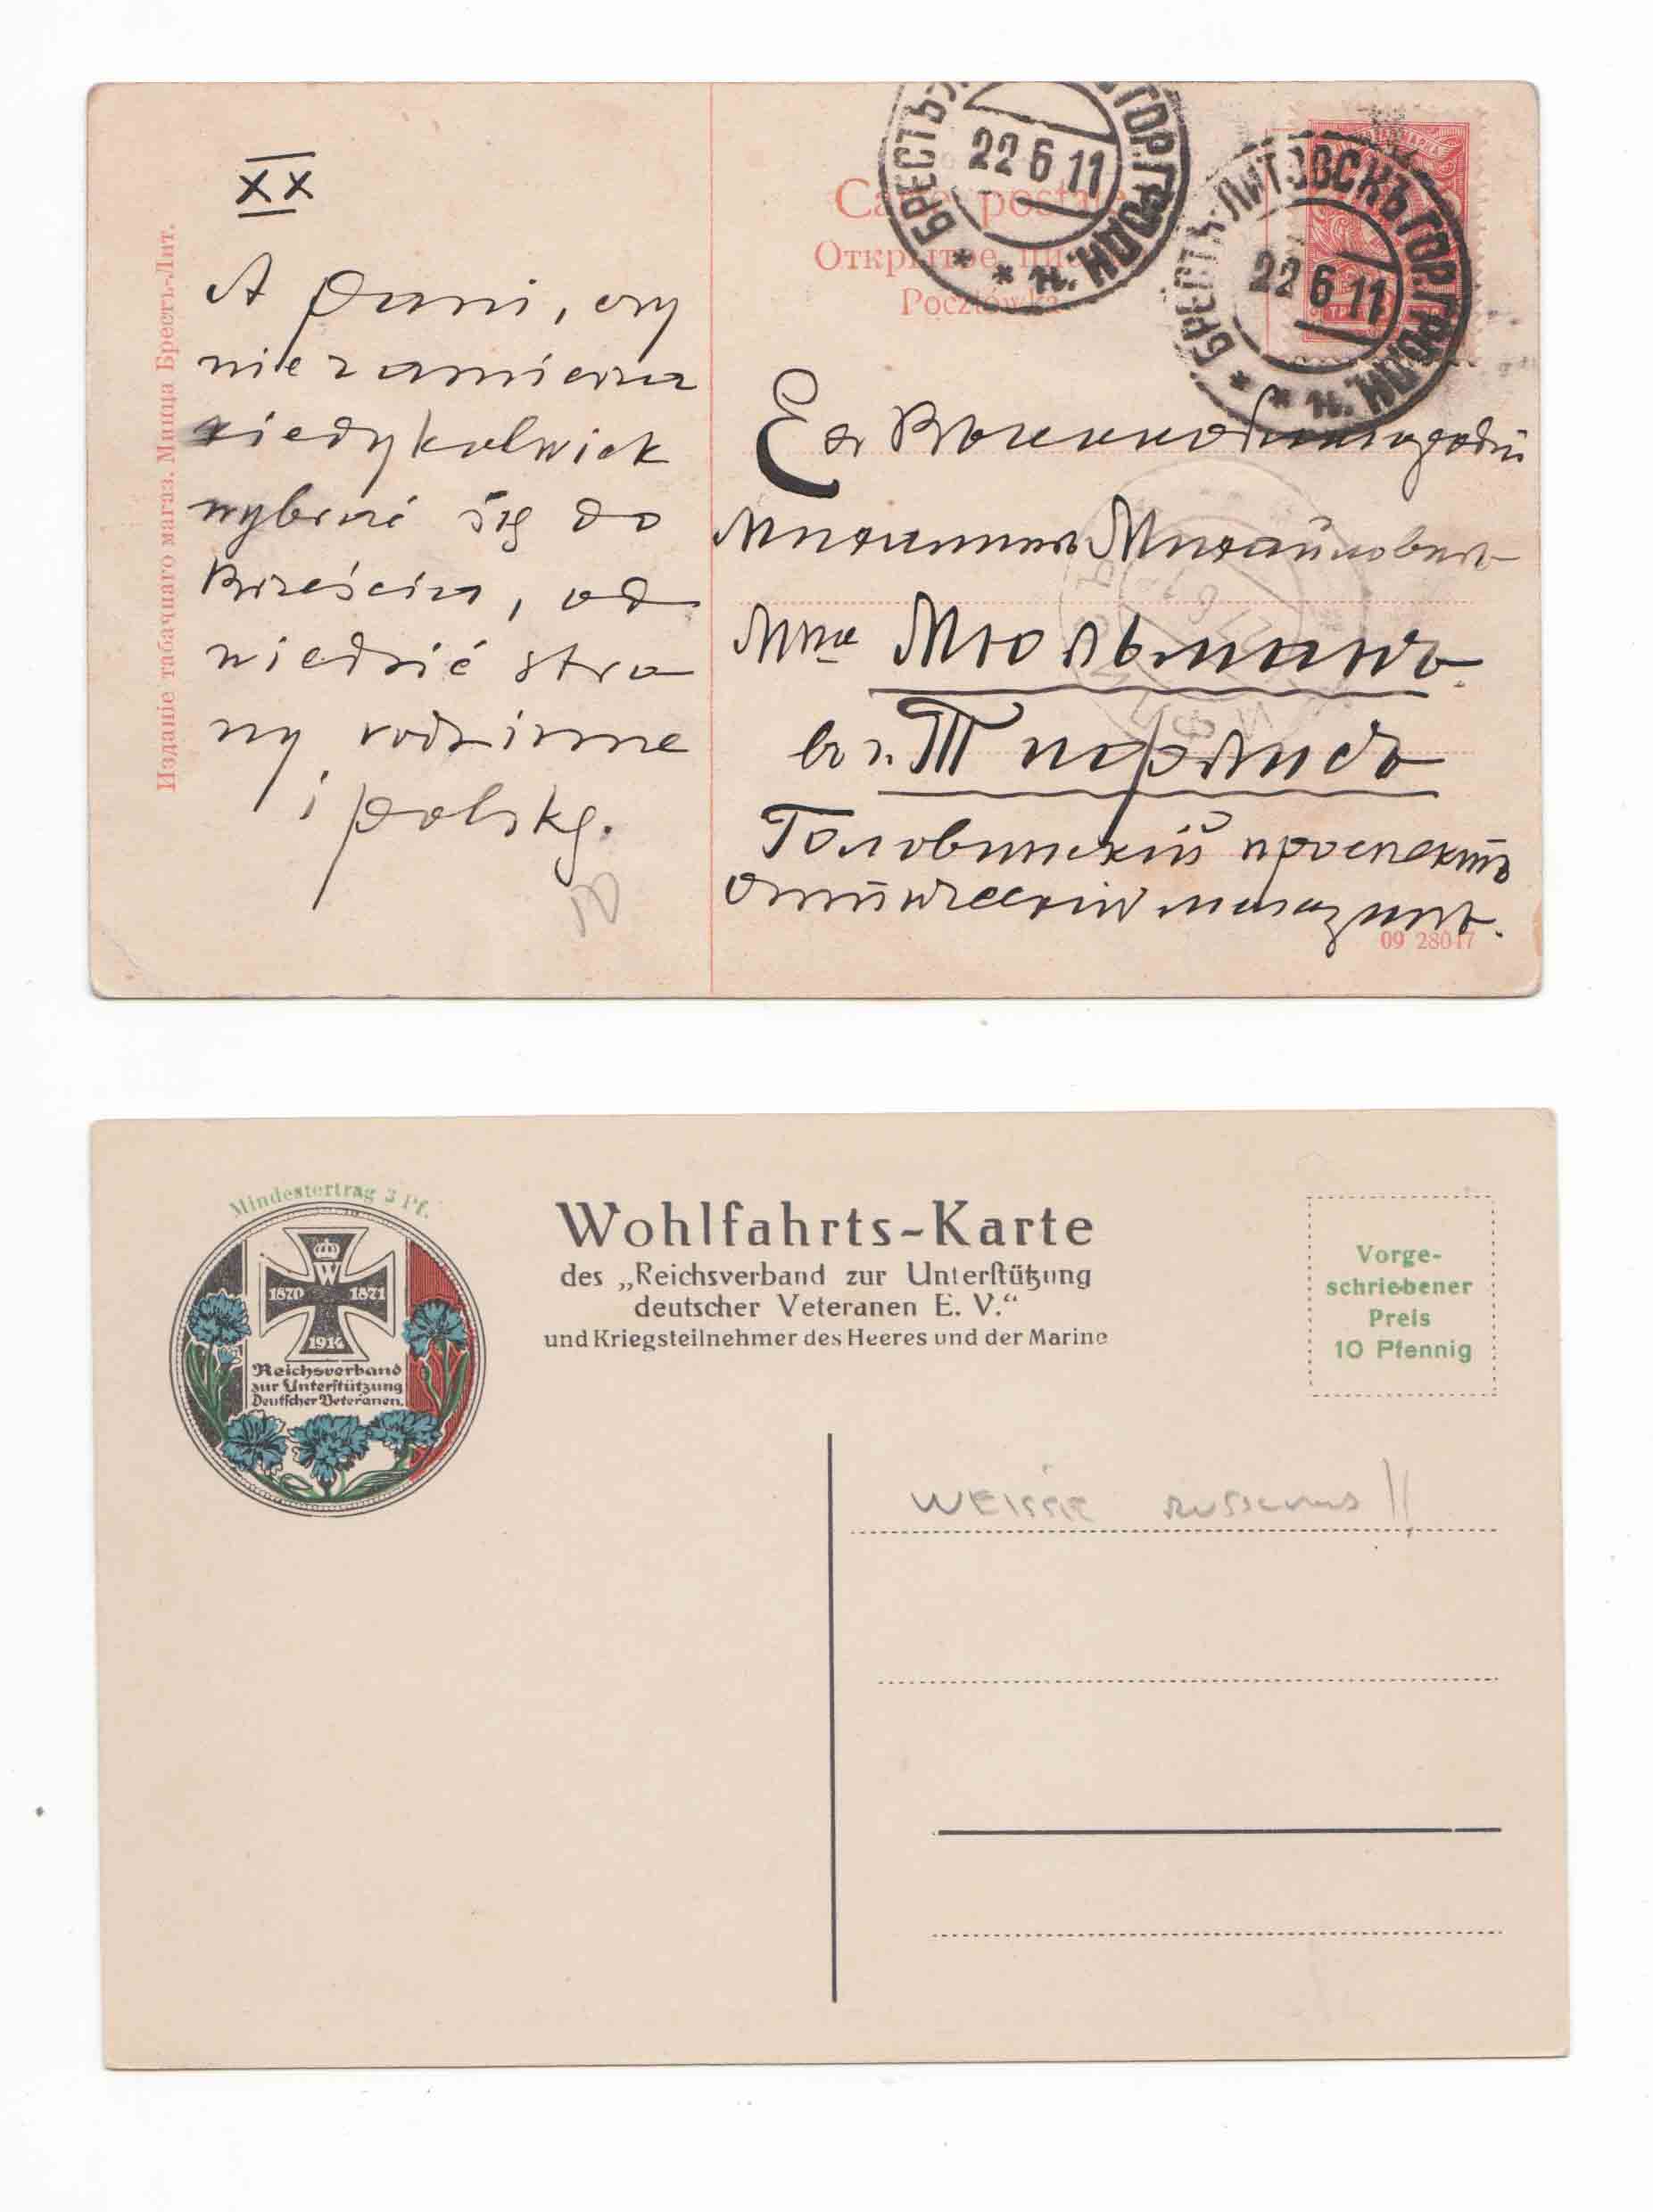 XX
A Pani, czy
nie zamierza
kiedykolwiek
wybrać się do
Brześcia, od
wiedzić stro
ny rodzinne
i polskę.
Изданіе табачнаго магаз. Минца Брестъ-Лит.
Открытое
Pocztówka
БРЕСТЪ
ГОР. ГРОДН.
22 6 11
БРЕСТЪ-ЛИТОВСКЪ ГОР. ГРОДН.
22 6 11
Ея Высокоблагородiю
Мюльманъ
въ г. Тифлисъ
Головинскiй проспектъ
оптическiй магазинъ.
09 28017
Mindestertrag 3 Pf.
W
1870 1871
1914
Reichsverband
zur Unterstützung
Deutscher Veteranen.
Wohlfahrts-Karte
des „Reichsverband zur Unterstützung
deutscher Veteranen E. V.“
und Kriegsteilnehmer des Heeres und der Marine
Vorge-
schriebener
Preis
10 Pfennig
WEISSE